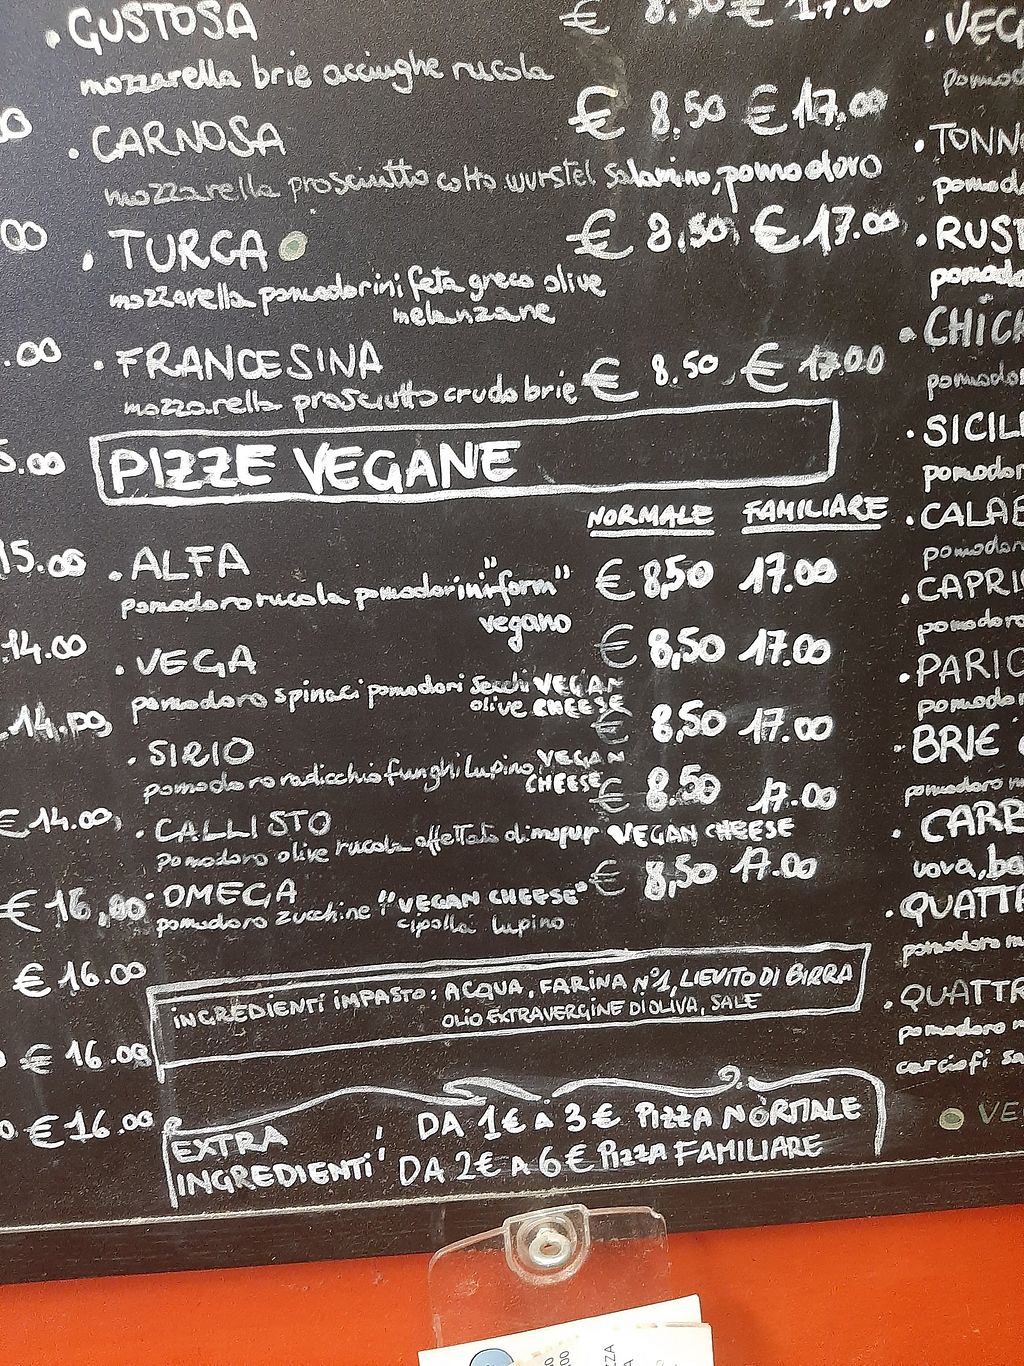 . GUSTOSA € 8.50 € 17.00
mozzarella brie acciughe rucola
. CARNOSA € 8.50 € 17.00
mozzarella prosciutto cotto wurstel salamino, pomodoro
. TURCA € 8.50 € 17.00
mozzarella pomodorini feta greca olive
melanzane
. FRANCESINA € 8.50 € 17.00
mozzarella prosciutto crudo brie
PIZZE VEGANE
NORMALE FAMILIARE
. ALFA € 8,50 17.00
pomodoro rucola pomodorini "form"
vegano
. VEGA € 8,50 17.00
pomodoro spinaci pomodori secchi VEGAN
olive CHEESE
. SIRIO € 8,50 17.00
pomodoro radicchio funghi lupino VEGAN
CHEESE
. CALLISTO € 8.50 17.00
pomodoro olive rucola affettato di mopur VEGAN CHEESE
. OMEGA € 8,50 17.00
pomodoro zucchine "VEGAN CHEESE"
cipolla lupino
INGREDIENTI IMPASTO: ACQUA, FARINA N°1, LIEVITO DI BIRRA
OLIO EXTRAVERGINE DI OLIVA, SALE
EXTRA DA 1€ A 3€ PIZZA NORMALE
INGREDIENTI DA 2€ A 6€ PIZZA FAMILIARE
15.00
14.00
14.00
€ 14.00
€ 16.00
€ 16.00
€ 16.00
€ 16.00
. VEG
pomod
. TONN
pomod
. RUST
pomodo
. CHIC
pomodor
. SICIL
pomodor
. CALAB
pomodor
. CAPRI
pomodoro
. PARIG
pomodoro
. BRIE
pomodoro
. CARB
uova, ba
. QUATTR
pomodoro m
. QUATTR
pomodoro m
carciofi sa
VE